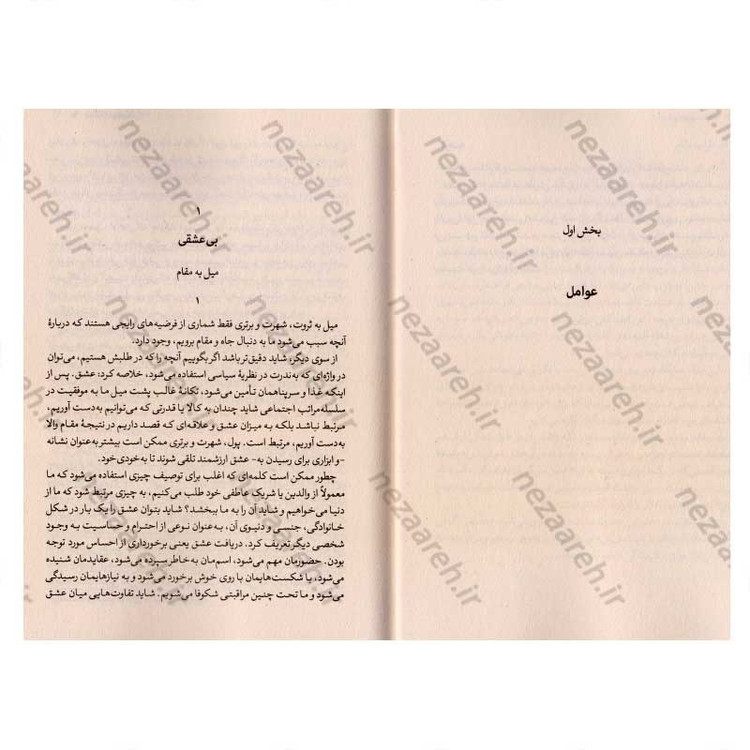 بخش اول
عوامل
۱
بی‌عشقی
میل به مقام
۱
میل به ثروت، شهرت و برتری فقط شماری از فرضیه‌های رایجی هستند که دربارهٔ
آنچه سبب می‌شود ما به دنبال جاه و مقام برویم، وجود دارد.
از سوی دیگر، شاید دقیق‌تر باشد اگر بگوییم آنچه را که در طلبش هستیم، می‌توان
در واژه‌ای که به‌ندرت در نظریهٔ سیاسی استفاده می‌شود، خلاصه کرد: عشق. پس از
اینکه غذا و سرپناهمان تأمین می‌شود، تکانهٔ غالب پشت میل ما به موفقیت در
سلسله‌مراتب اجتماعی شاید چندان به کالا یا قدرتی که می‌توانیم به‌دست آوریم،
مرتبط نباشد بلکه به میزان عشق و علاقه‌ای که قصد داریم در نتیجهٔ مقام والا
به‌دست آوریم، مرتبط است. پول، شهرت و برتری ممکن است بیشتر به‌عنوان نشانه
-و ابزاری برای رسیدن به- عشق ارزشمند تلقی شوند تا به‌خودی‌خود.
چطور ممکن است کلمه‌ای که اغلب برای توصیف چیزی استفاده می‌شود که ما
معمولاً از والدین یا شریک عاطفی خود طلب می‌کنیم، به چیزی مرتبط شود که ما از
دنیا می‌خواهیم و شاید آن را به ما ببخشد؟ شاید بتوان عشق را یک بار در شکل
خانوادگی، جنسی و دنیوی آن، به‌عنوان نوعی از احترام و حساسیت به وجود
شخصی دیگر تعریف کرد. دریافت عشق یعنی برخورداری از احساس مورد توجه
بودن. حضورمان مهم می‌شود، اسم‌مان به خاطر سپرده می‌شود، عقایدمان شنیده
می‌شود، با شکست‌هایمان با روی خوش برخورد می‌شود و به نیازهایمان رسیدگی
می‌شود و ما تحت چنین مراقبتی شکوفا می‌شویم. شاید تفاوت‌هایی میان عشق
nezaareh.ir
nezaareh.ir
nezaareh.ir
nezaareh.ir
nezaareh.ir
nezaareh.ir
nezaareh.ir
nezaareh.ir